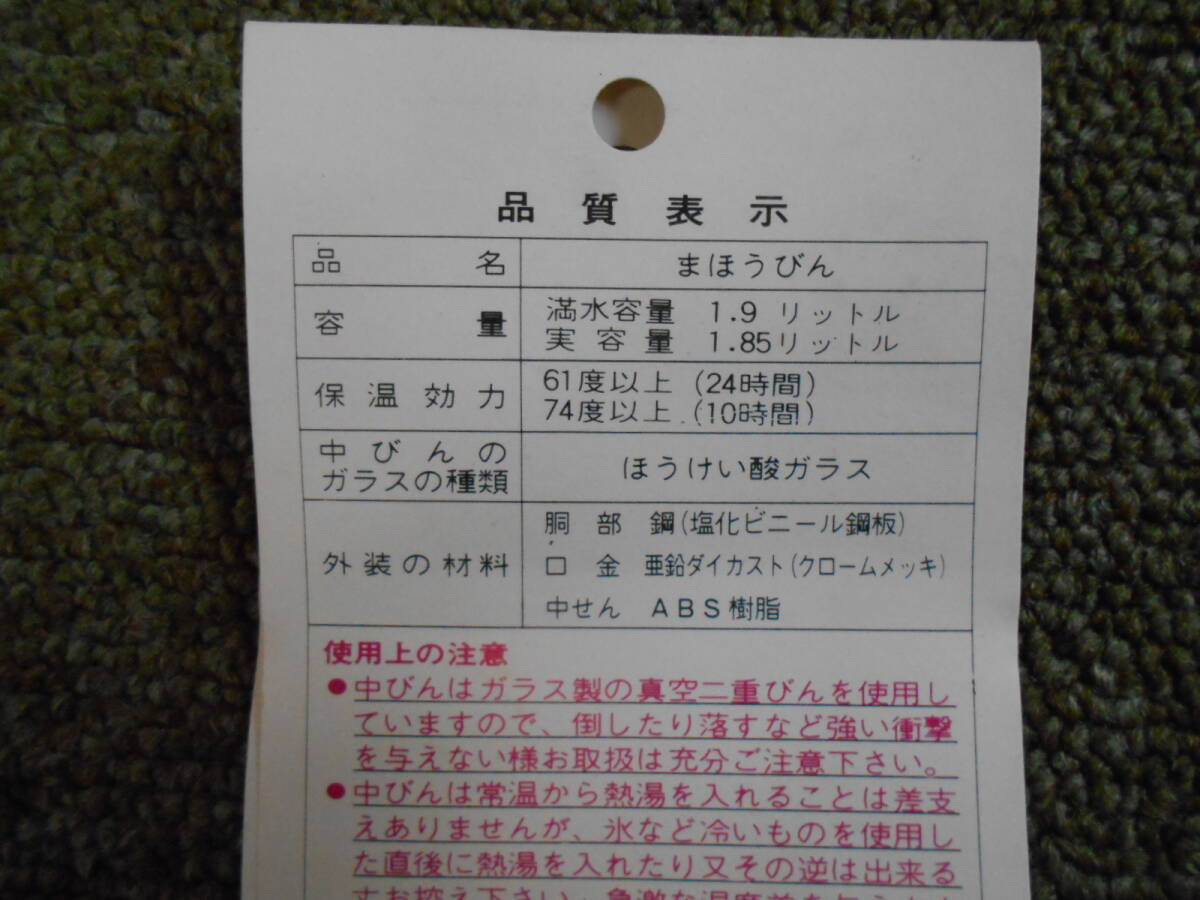 品質表示
品名 まほうびん
容量 満水容量 1.9 リットル
実容量 1.85リットル
保温効力 61度以上 (24時間)
74度以上 (10時間)
中びんの
ガラスの種類 ほうけい酸ガラス
外装の材料 胴部 鋼(塩化ビニール鋼板)
口金 亜鉛ダイカスト(クロームメッキ)
中せん ABS樹脂
使用上の注意
●中びんはガラス製の真空二重びんを使用し
ていますので、倒したり落すなど強い衝撃
を与えない様お取扱は充分ご注意下さい。
●中びんは常温から熱湯を入れることは差支
えありませんが、氷など冷いものを使用し
た直後に熱湯を入れたり又その逆は出来る